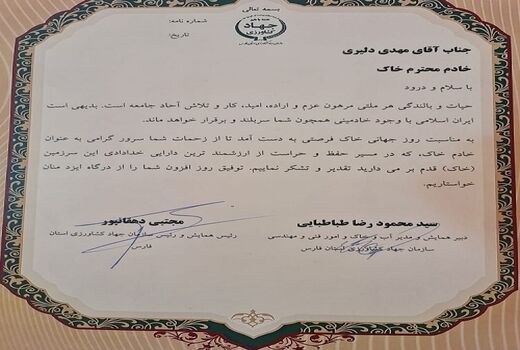 بسمه تعالی
شماره نامه:
تاریخ:
جهاد
کشاورزی
جناب آقای مهدی دلیری
خادم محترم خاک
با سلام و درود
حیات و بالندگی هر ملتی مرهون عزم و اراده، امید، کار و تلاش آحاد جامعه است. بدیهی است
ایران اسلامی با وجود خادمینی همچون شما سربلند و برقرار خواهد ماند.
به مناسبت روز جهانی خاک فرصتی به دست آمد تا از زحمات شما سرور گرامی به عنوان
خادم خاک، که در مسیر حفظ و حراست از ارزشمند ترین دارایی خدادادی این سرزمین
(خاک) قدم بر می دارید تقدیر و تشکر نماییم. توفیق روز افزون شما را از درگاه ایزد منان
خواستاریم.
سید محمود رضا طباطبایی
دبیر همایش و مدیر آب و خاک و امور فنی و مهندسی
سازمان جهاد کشاورزی استان فارس
مجتبی دهقانپور
رئیس همایش و رئیس سازمان جهاد کشاورزی استان
فارس